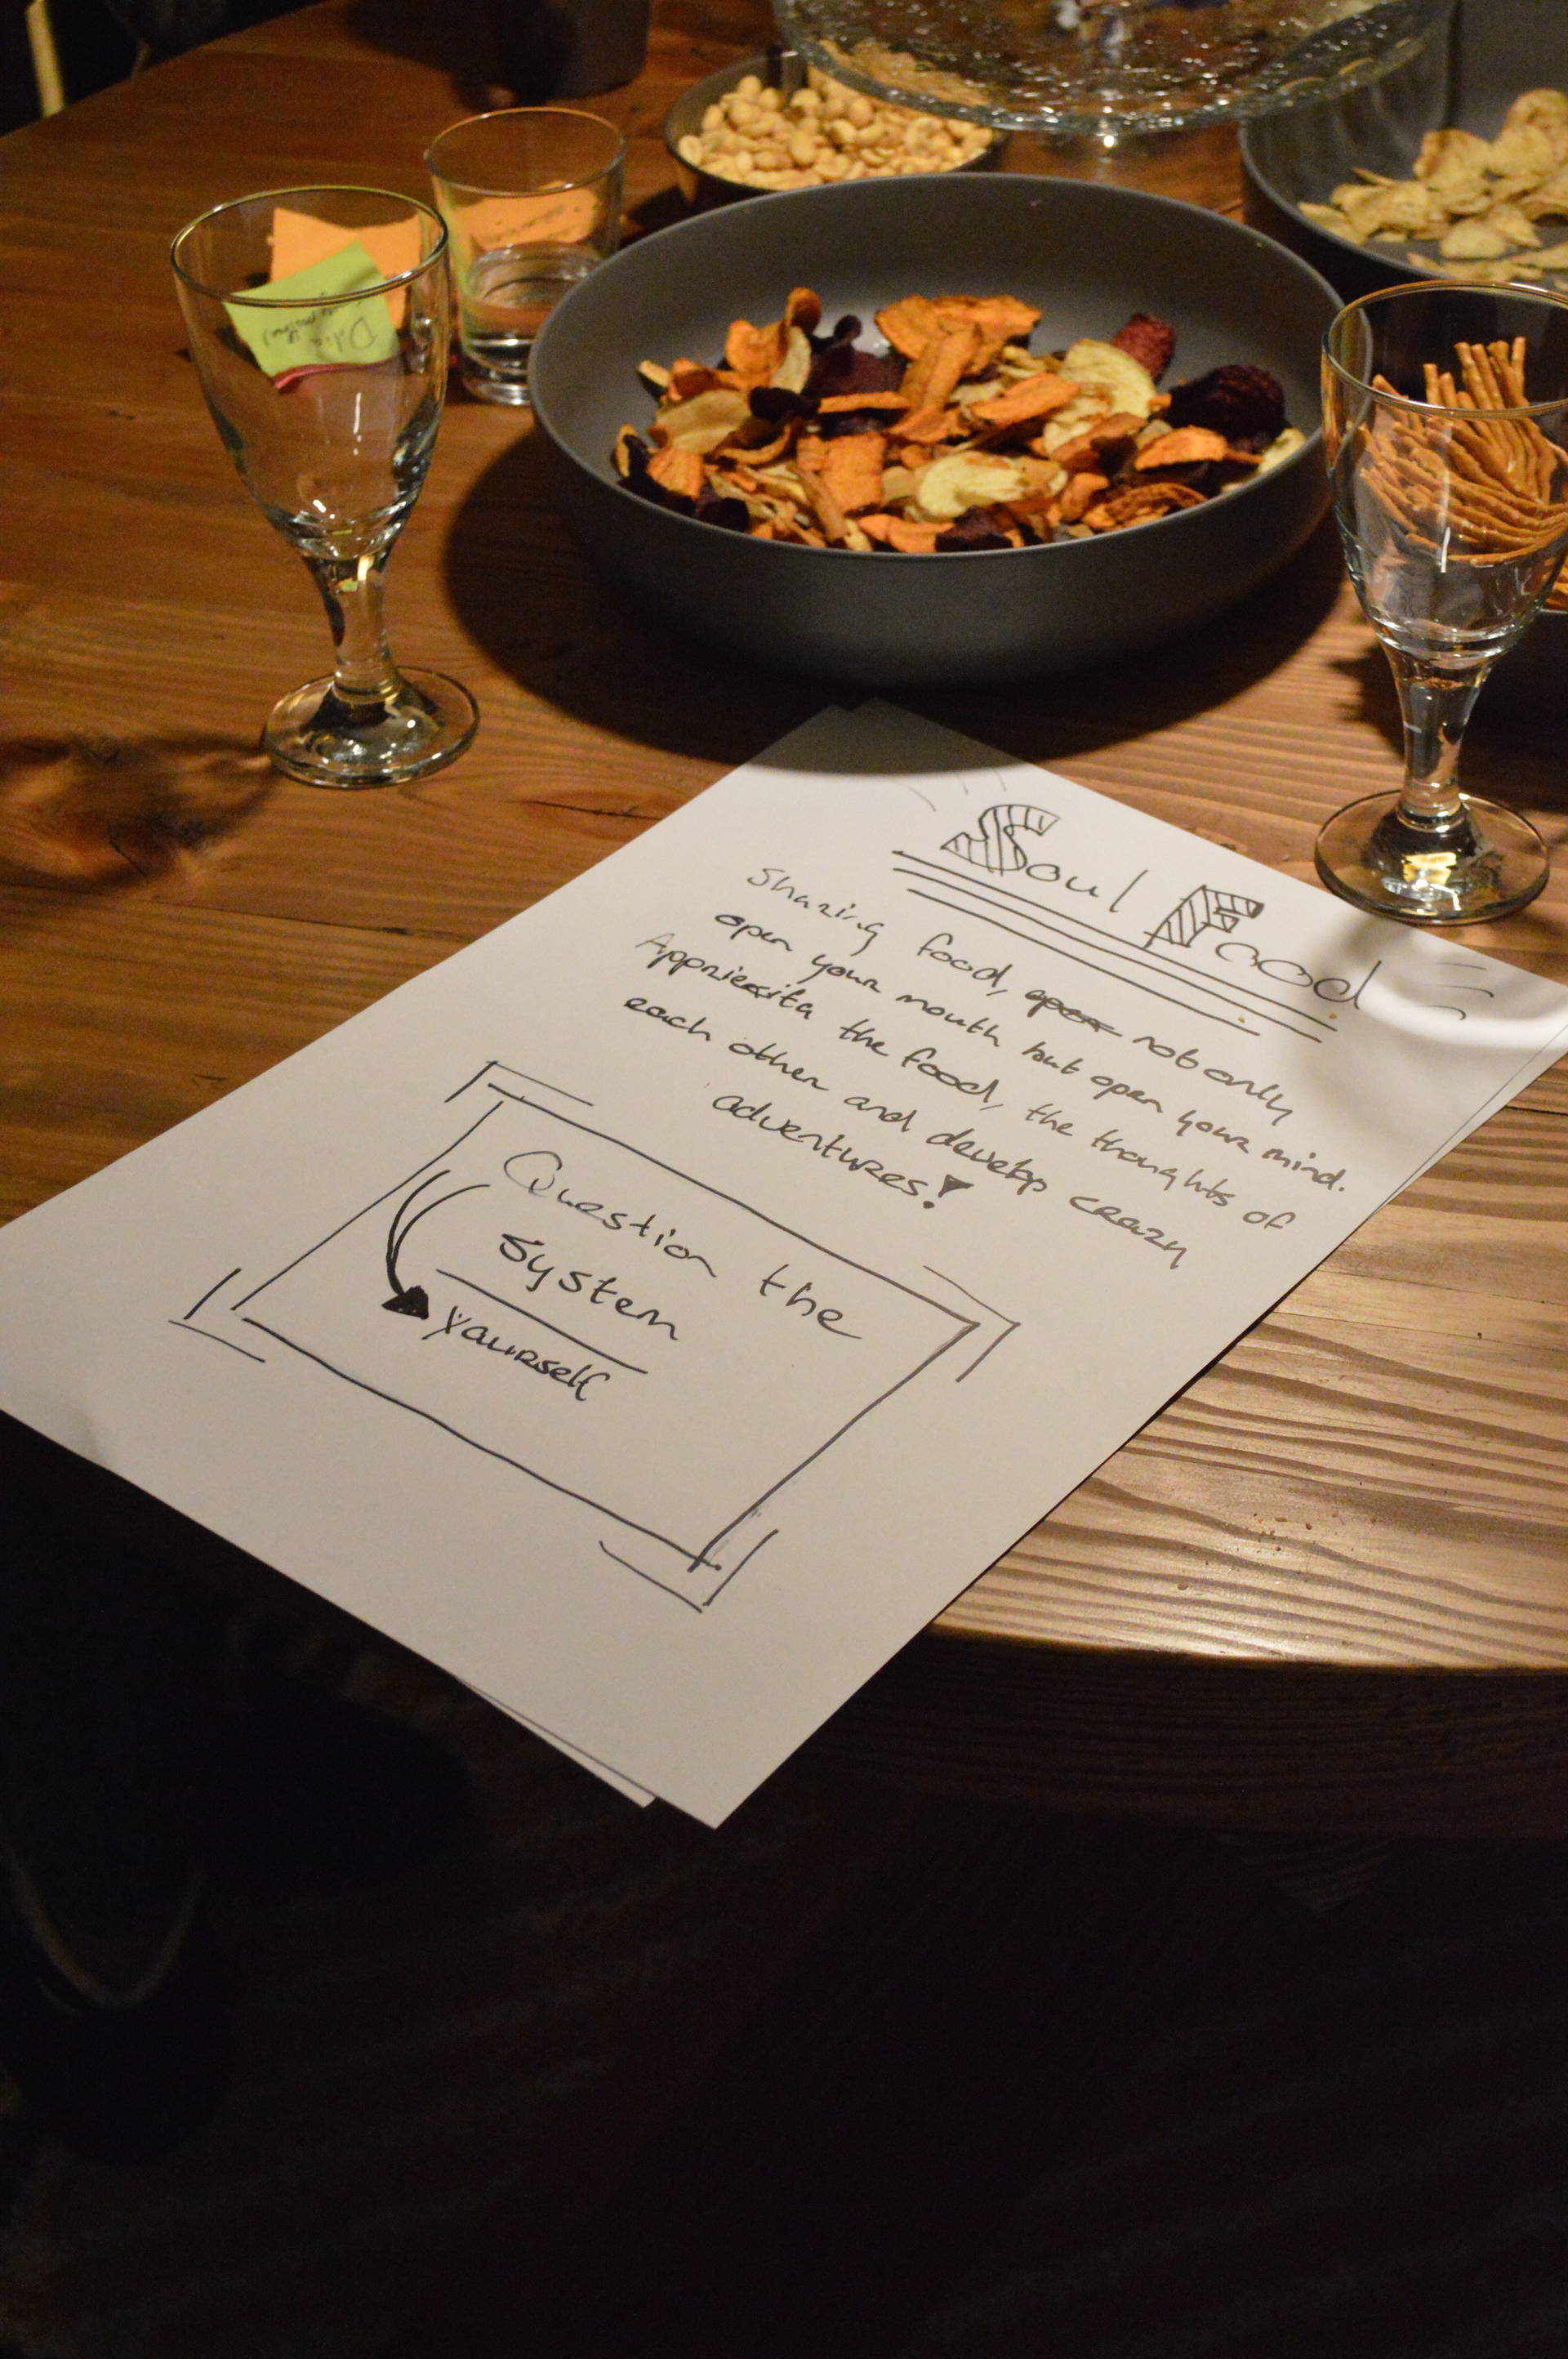 Soul Food
Sharing food, not only
open your mouth but open your mind.
Appriesita the food, the thoughts of
each other and develop crazy
adventures!
Question the
System
yourself